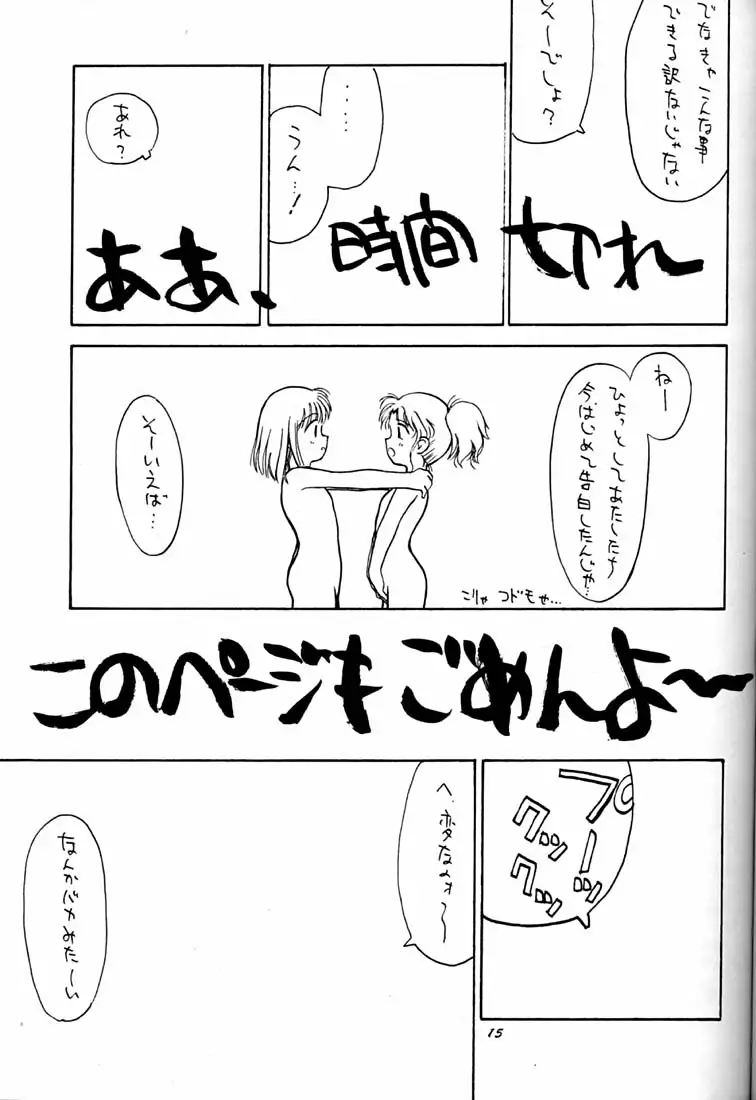 でなきゃこんな事
できる訳ないじゃない
そーでしょ?
・・・・
うん…!
あれ?
ああ、時間切れ〜
ねー
ひょっとしてあたしたち
今はじめて告白したんじゃ…
こりゃ コドモや…
そーいえば…
このページもごめんよ〜
プーッ
クッ
クッ
へ、変なのォ〜
なんかバカみたーい
15